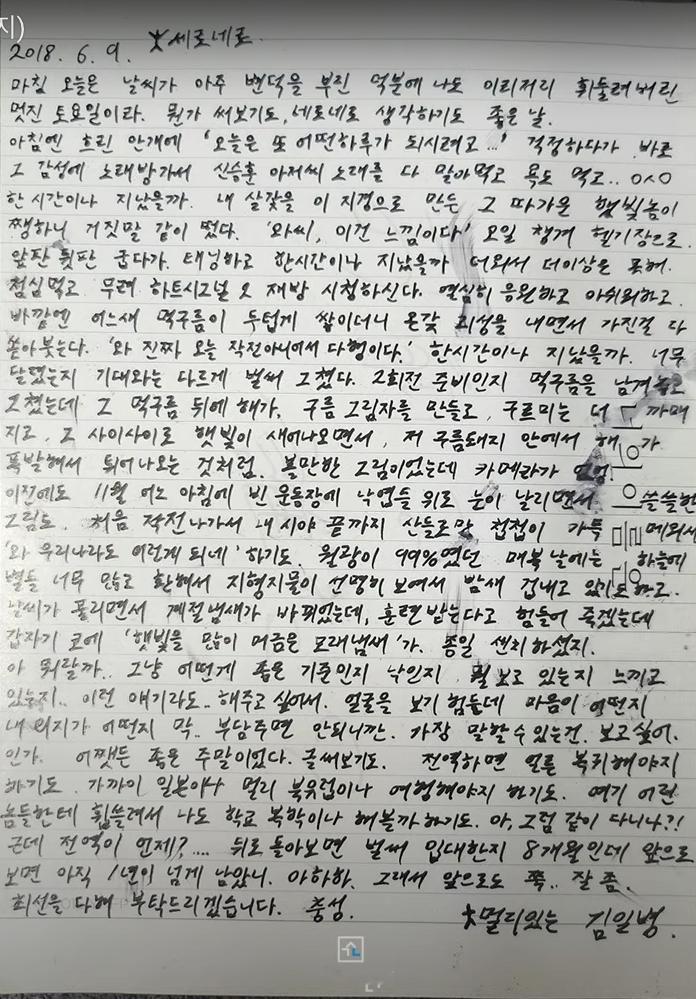 지)
2018. 6. 9. 세로네로
마침 오늘은 날씨가 아주 변덕을 부린 덕분에 나도 이리저리 휘둘려버린
멋진 토요일이라. 뭔가 써보기도, 네로네로 생각하기도 좋은 날.
아침엔 흐린 안개에 '오늘은 또 어떤하루가 되시려고...' 걱정하다가 바로
그 감성에 노래방가서 신승훈 아저씨 노래를 다 말아먹고 욕도 먹고.. 0^0
한시간이나 지났을까. 내 살갗을 이 지경으로 만든 그 따가운 햇빛놈이
쨍하니 거짓말 같이 떴다. '와씨, 이건 느낌이다' 오일 챙겨 헬기장으로.
앞판 뒷판 굽다가. 태닝하고 한시간이나 지났을까 더워서 더이상은 못해.
점심먹고 무려 하트시그널 2 재방 시청하신다. 열심히 응원하고 아쉬워하고.
바깥엔 어느새 먹구름이 두텁게 쌓이더니 온갖 괴성을 내면서 가진걸 다
쏟아붓는다. '와 진짜 오늘 작전아니어서 다행이다.' 한시간이나 지났을까. 너무
달렸는지 기대와는 다르게 벌써 그쳤다. 2회전 준비인지 먹구름을 남겨놓고
그쳤는데 그 먹구름 뒤에 해가. 구름 그림자를 만들고, 구르미는 더 까매
지고, 그 사이사이로 햇빛이 새어나오면서, 저 구름돼지 안에서 해가
폭발해서 튀어나오는 것처럼. 볼만한 그림이었는데 카메라가
이전에도 11월 어느 아침에 빈 운동장에 낙엽들 위로 눈이 날리면서 쓸쓸한
그림도. 처음 작전나가서 내 시야 끝까지 산들로만 첩첩이 가득 메워서
'와 우리나라도 이렇게 되네' 하기도. 월광이 99%였던 매복날에는 하늘에
별들 너무 많고 환해서 지형지물이 선명히 보여서 밤새 겁내고 있기도하고.
날씨가 풀리면서 계절냄새가 바뀌었는데, 훈련받는다고 힘들어 죽겠는데
갑자기 코에 '햇빛을 많이 머금은 모래냄새'가. 종일 센치하셨지.
아 뭐랄까.. 그냥 어떻게 좁은 기준인지 낙인지 뭘 보고 있는지 느끼고
있는지.. 이런 얘기라도.. 해주고 싶어서. 얼굴을 보기 힘든데 마음이 어떤지
내 의지가 어떤지 막.. 부담주면 안되니깐. 가장 말할수있는건. 보고싶어.
인가. 어쨌든 좋은 주말이었다. 글써보기도. 전역하면 얼른 복귀해야지
하기도. 가까이 일본이나 멀리 북유럽이나 여행해야지 하기도. 여기 어린
놈들한테 휩쓸려서 나도 학교 복학이나 해볼까하기도. 아, 그럼 같이 다니나?!
근데 전역이 언제?.... 뒤로 돌아보면 벌써 입대한지 8개월인데 앞으로
보면 아직 1년이 넘게 남았니. 아하하. 그래서 앞으로도 쭉.. 잘 좀.
최선을 다해 부탁드리겠습니다. 충성.
멀리있는 김일병.